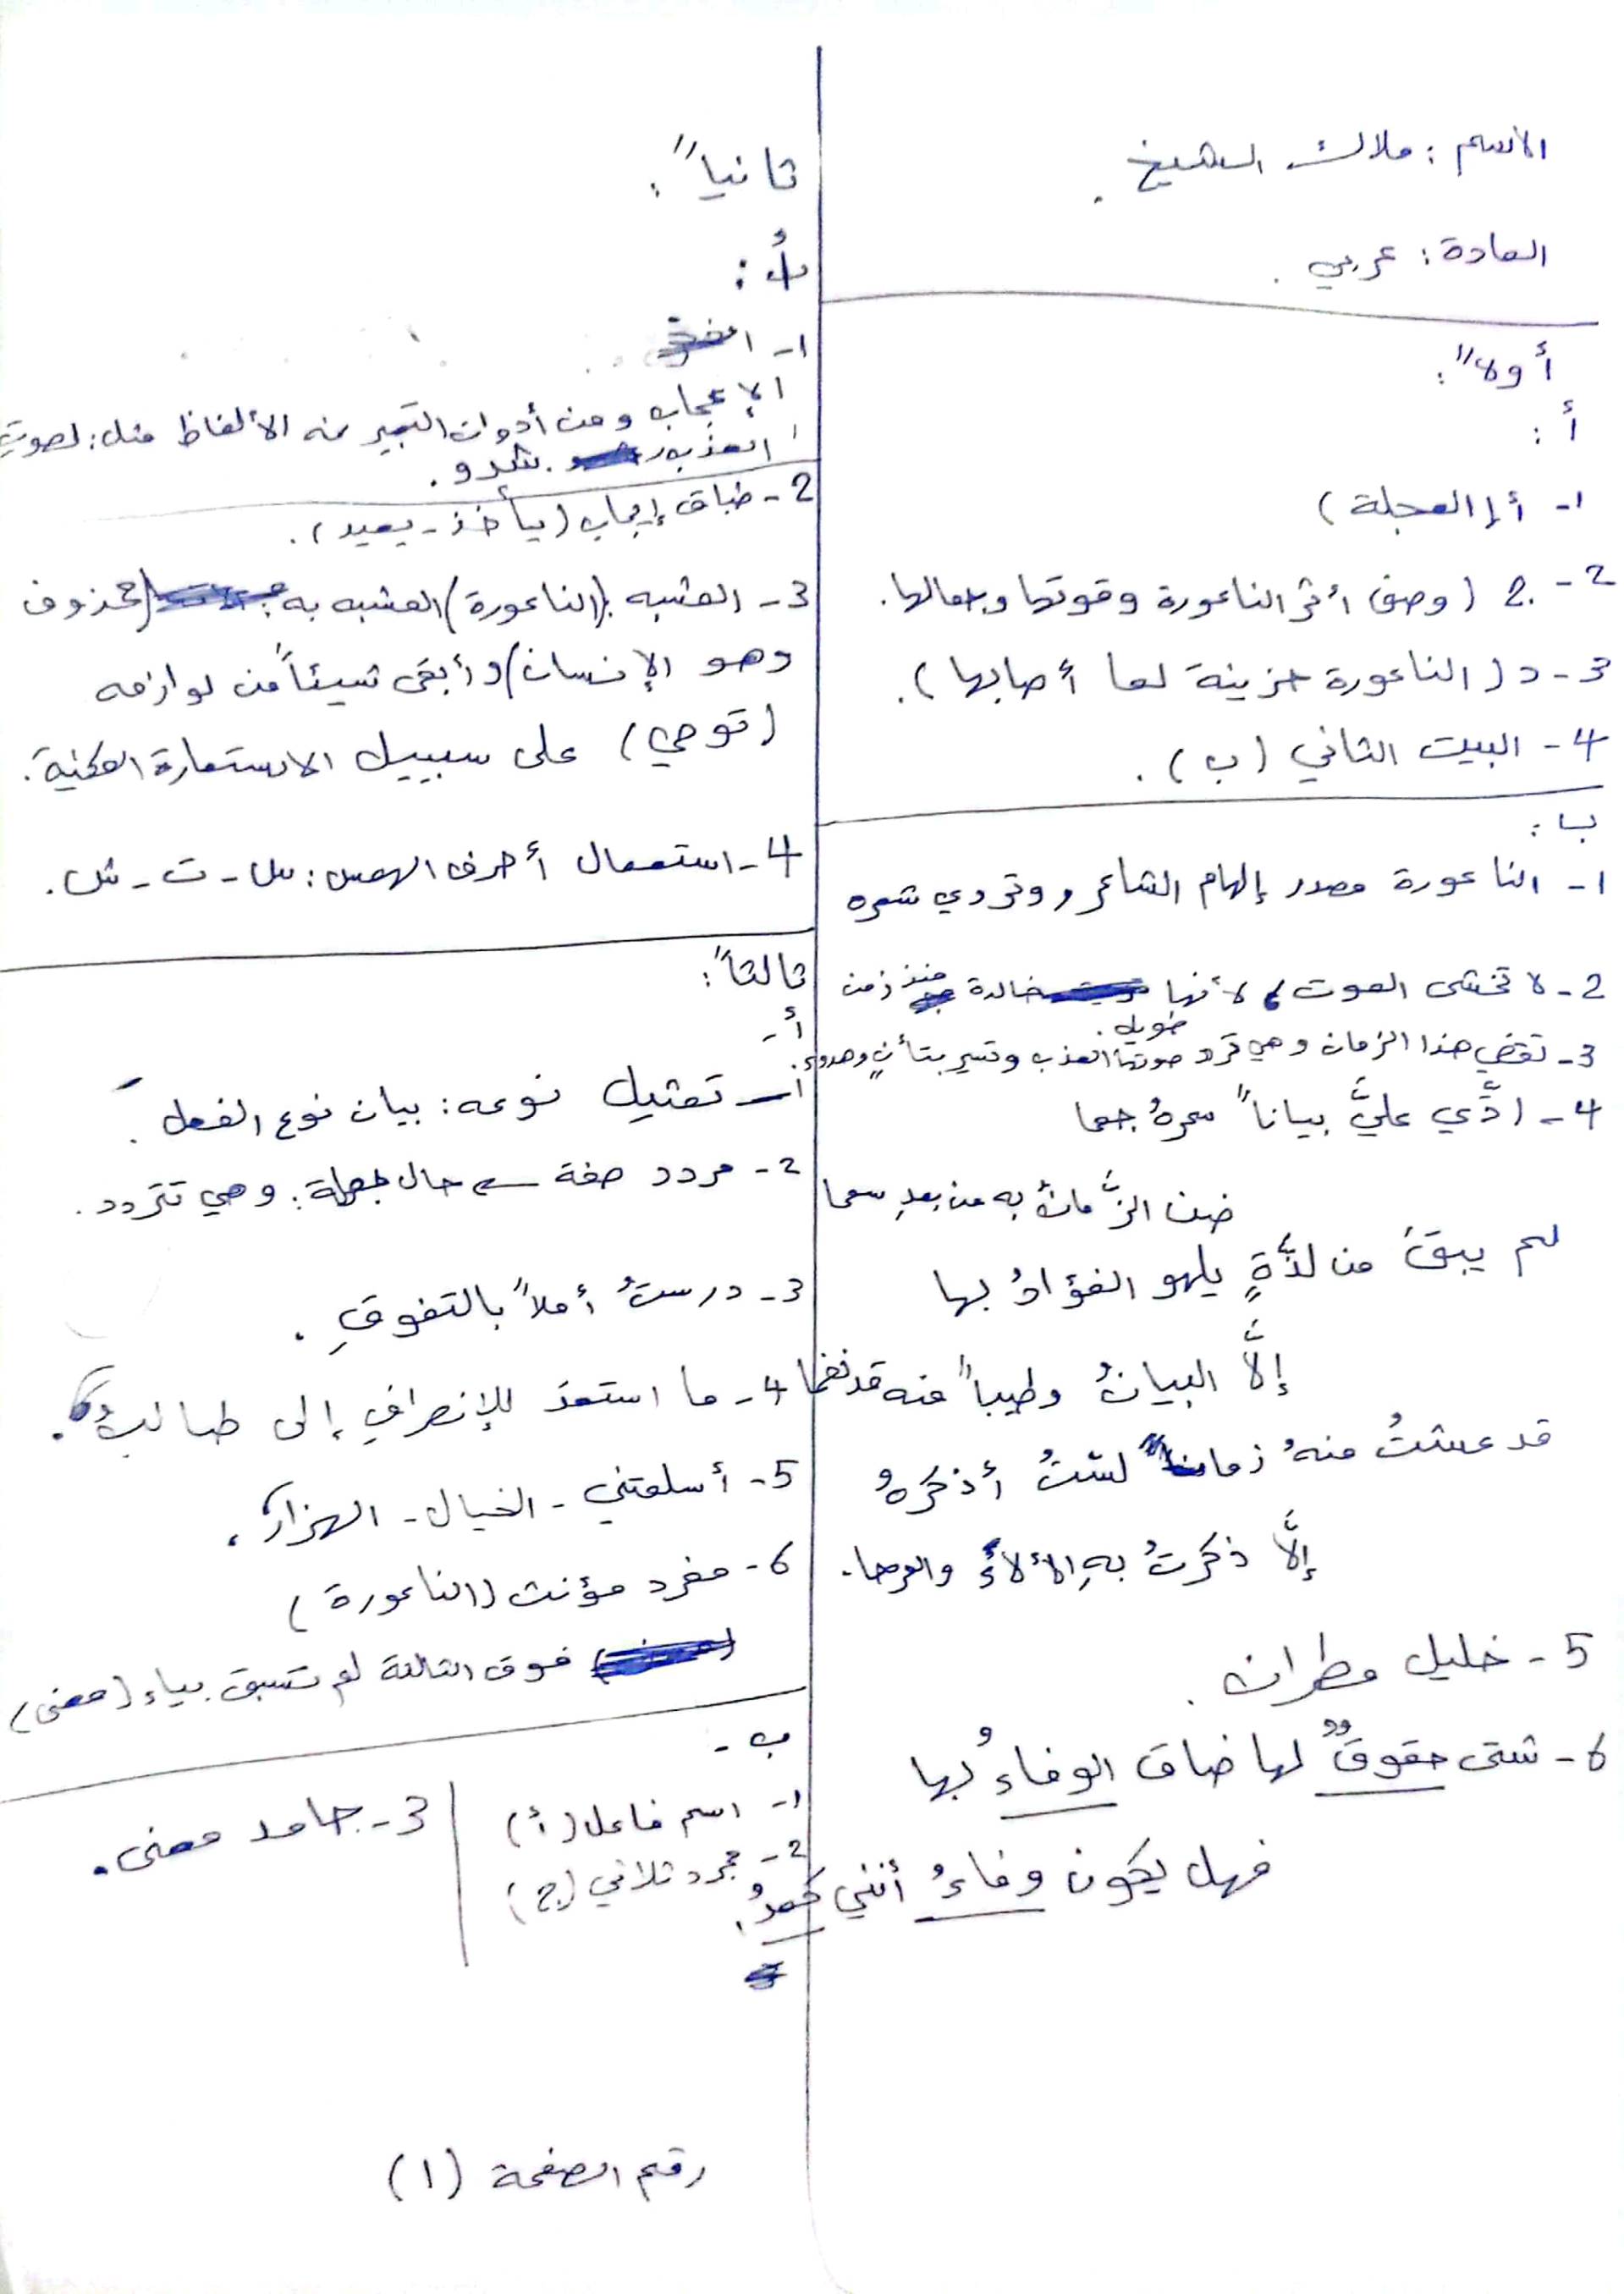 الاسم : ملاك الشيخ .
المادة : عربي .
أولاً :
أ :
1- أ ( العجلة )
2- 2. ( وصف أثر الناعورة وقوتها وجمالها.
3- د ( الناعورة حزينة لما أصابها ) .
4- البيت الثاني ( ب ) .
ب :
1- الناعورة مصدر إلهام الشاعر وتروي شعره
2- لا تخشى الموت ، لأنها خالدة منذ زمن
طويل .
3- تقضي هذا الزمان وهي تردد صوتها العذب وتسير بتأنٍ وهدوء.
4- ردِّي عليَّ بياناً سحرهُ جمما
ضن الزَّمانُ به من بعدِ سمما
لم يبقَ من لذَّةٍ يلهو الفؤادُ بها
إلَّا البيانُ وطيباً منه قد نغما
قد عشتُ منهُ زماناً لستُ أذكرهُ
إلَّا ذكرتُ بهِ الألاءَ والرحا.
5- خليل مطران .
6- شتى حقوقٌ لها ضاق الوفاءُ بها
فهل يكون وفاءُ أنني كمدُ.
ثانياً :
أ :
1-
الإعجاب ومن أدوات التعبير عنه الألفاظ مثل : لصوت
العذب، يشدو .
2- طباق إيجاب ( يأخذ - يعيد ) .
3- المشبه : (الناعورة) المشبه به : (محذوف
وهو الإنسان) وأبقى شيئاً من لوازمه
( توحي ) على سبيل الاستعارة المكنية.
4- استعمال أحرف الهمس : س - ت - ش .
ثالثاً :
أ-
1- تمثيل نوعه : بيان نوع الفعل .
2- مردد صفة حال جملة : وهي تتردد .
3- درستُ أملاً بالتفوقِ .
4- ما استعدَ للإنصرافِ إلى طالبٌ .
5- أسلمتني - الخيال - الهزار .
6- مفرد مؤنث ( الناعورة )
فوق الثالثة لم تسبق بياء ( معنى )
ب -
1- اسم فاعل ( أ )
2- مجرد ثلاثي ( ج )
3- جامد معنى .
رقم الصفحة (1)